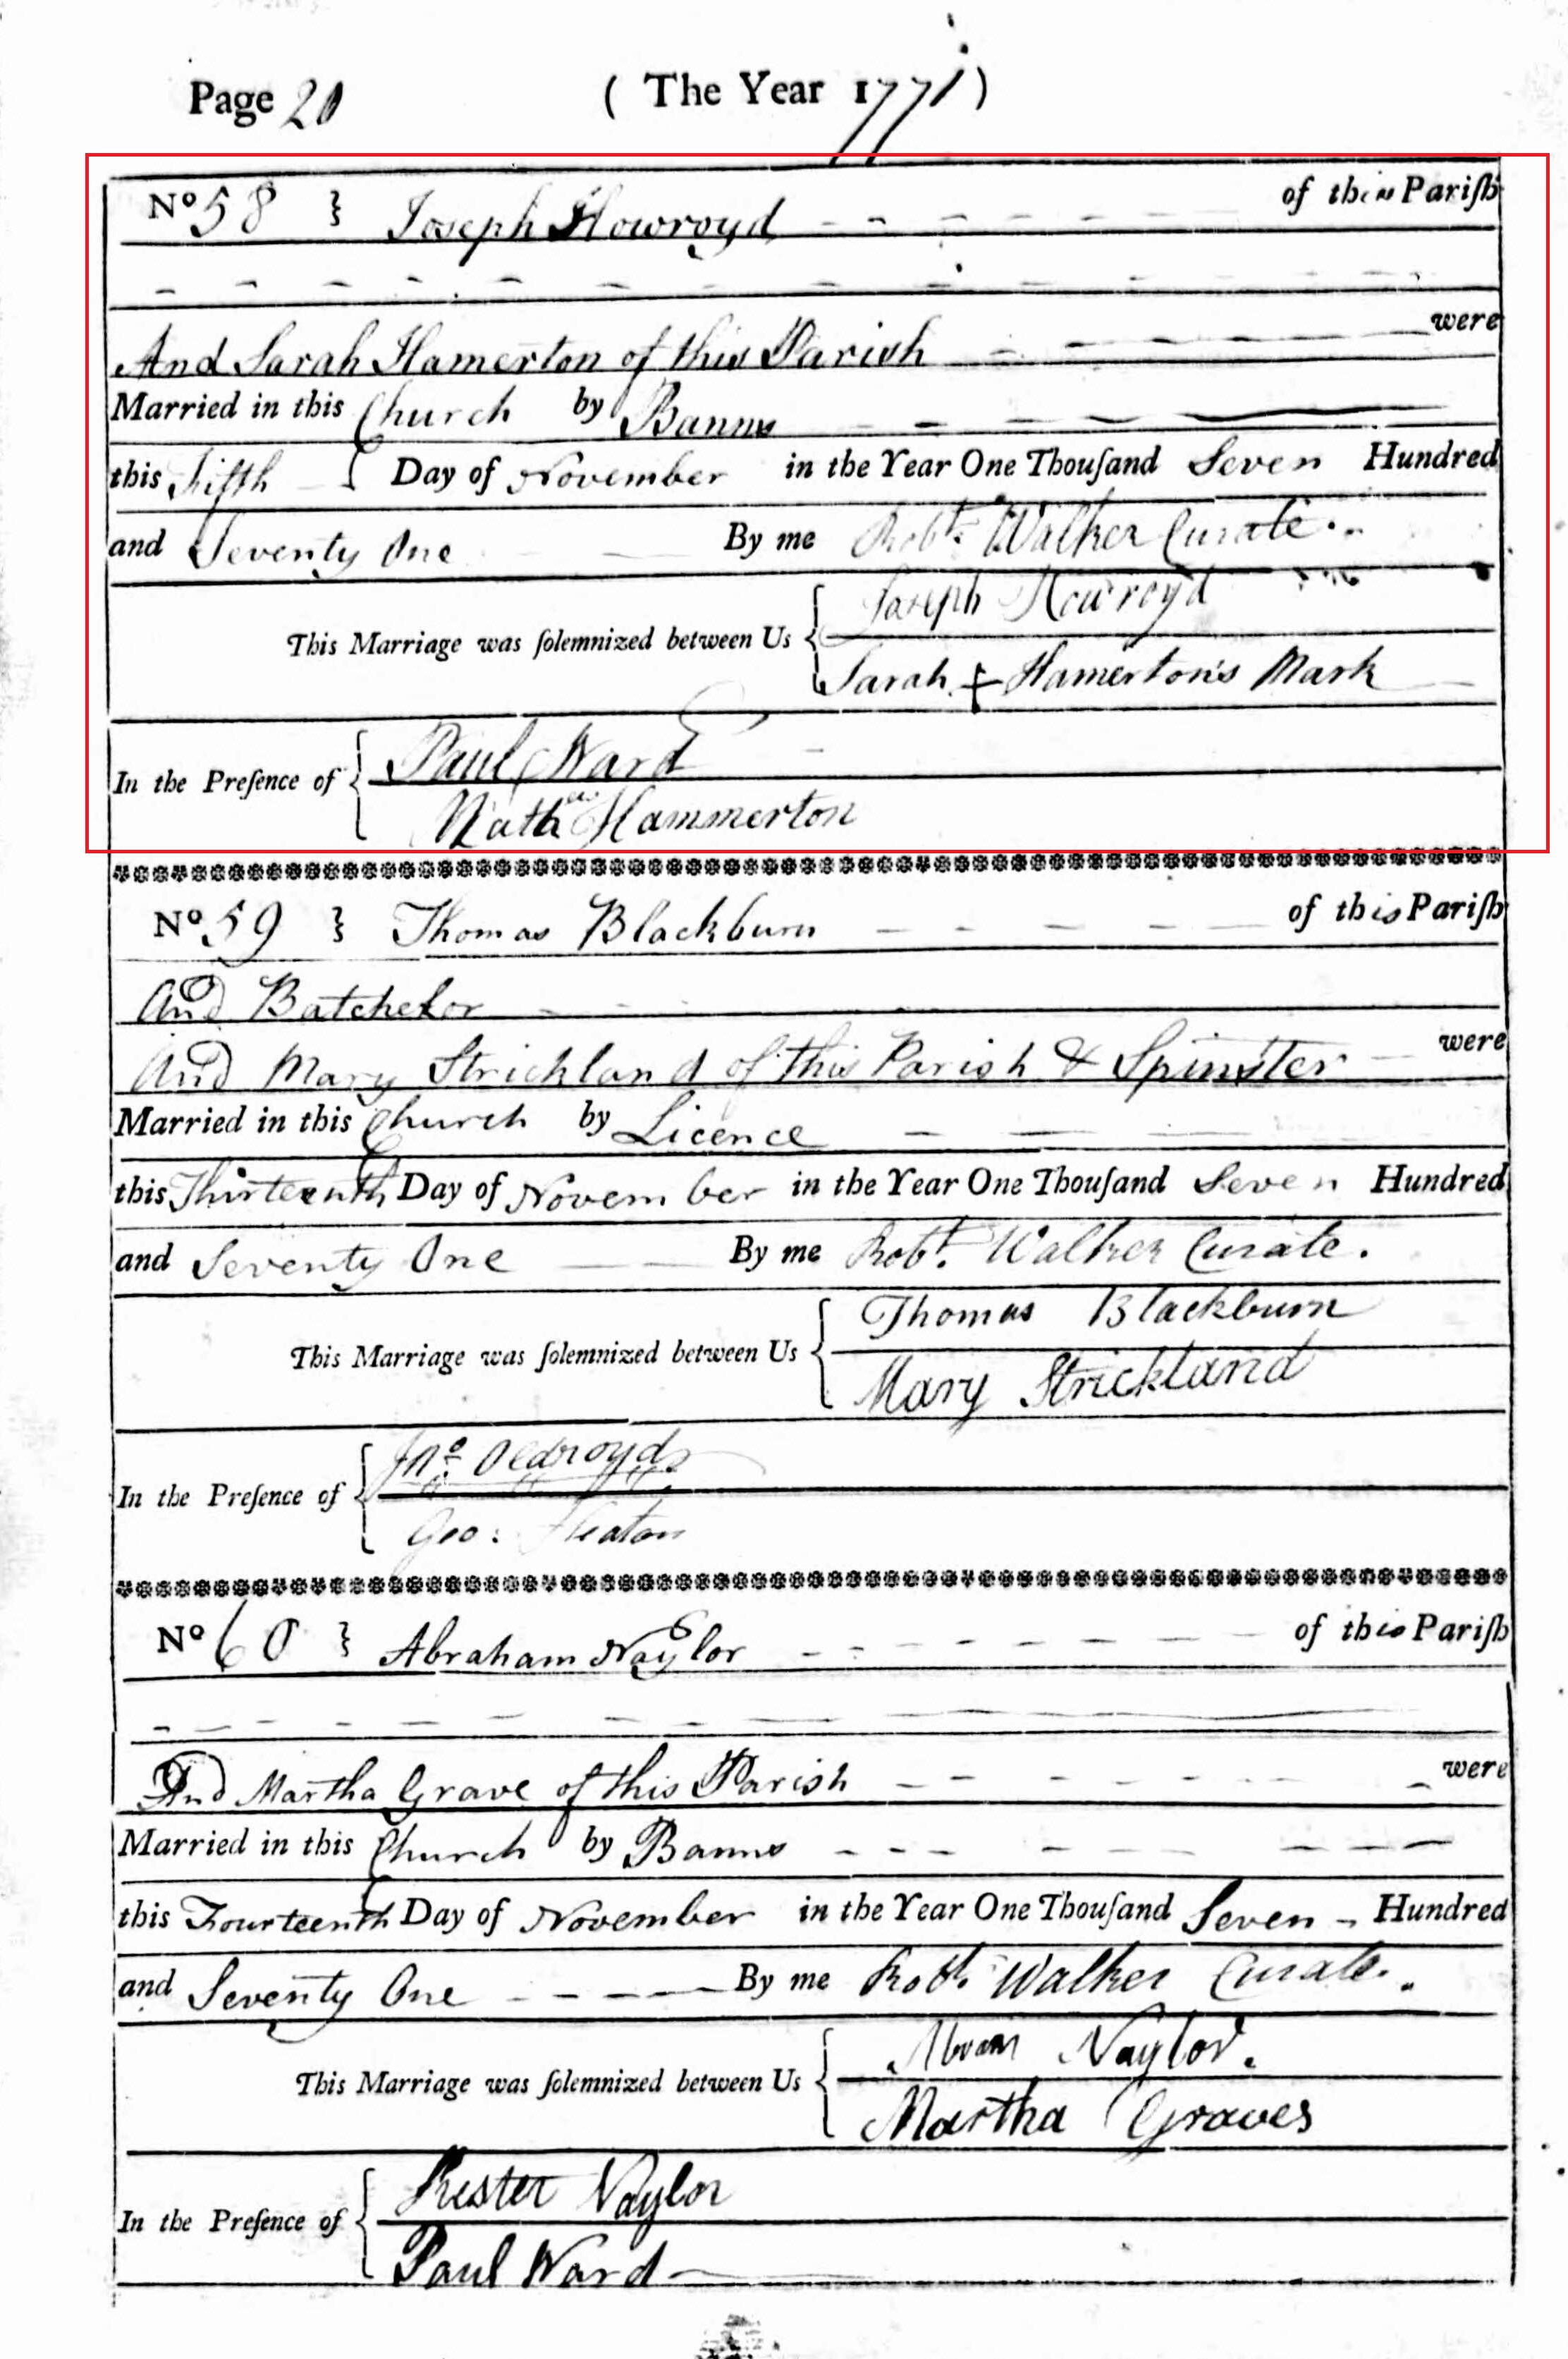 Page 20 ( The Year 1771 )
No 58 } Joseph Howroyd - - - - - - of this Pariſh
And Sarah Hamerton of this Parish - - - - - were
Married in this Church by Banns
this fifth Day of November in the Year One Thouſand Seven Hundred
and Seventy One By me Robt. Walker Curate.
Joseph Howroyd
This Marriage was ſolemnized between Us {
Sarah + Hamerton's Mark
Paul Ward
In the Preſence of {
Nath Hammerton
No 59 } Thomas Blackburn - - - - - of this Pariſh
And Batchelor
And Mary Strickland of this Parish & Spinster were
Married in this Church by Licence
this Thirteenth Day of November in the Year One Thouſand Seven Hundred
and Seventy One By me Robt. Walker Curate.
Thomas Blackburn
This Marriage was ſolemnized between Us {
Mary Strickland
Jno. Oldroyd
In the Preſence of {
Geo: Heaton
No 60 } Abraham Naylor - - - - - - of this Pariſh
And Martha Grave of this Parish - - - - - were
Married in this Church by Banns - - - - - - -
this Fourteenth Day of November in the Year One Thouſand Seven - Hundred
and Seventy One - - - - By me Robt. Walker Curate.
Abram Naylor.
This Marriage was ſolemnized between Us {
Martha Graves
Naylor
In the Preſence of {
Paul Ward